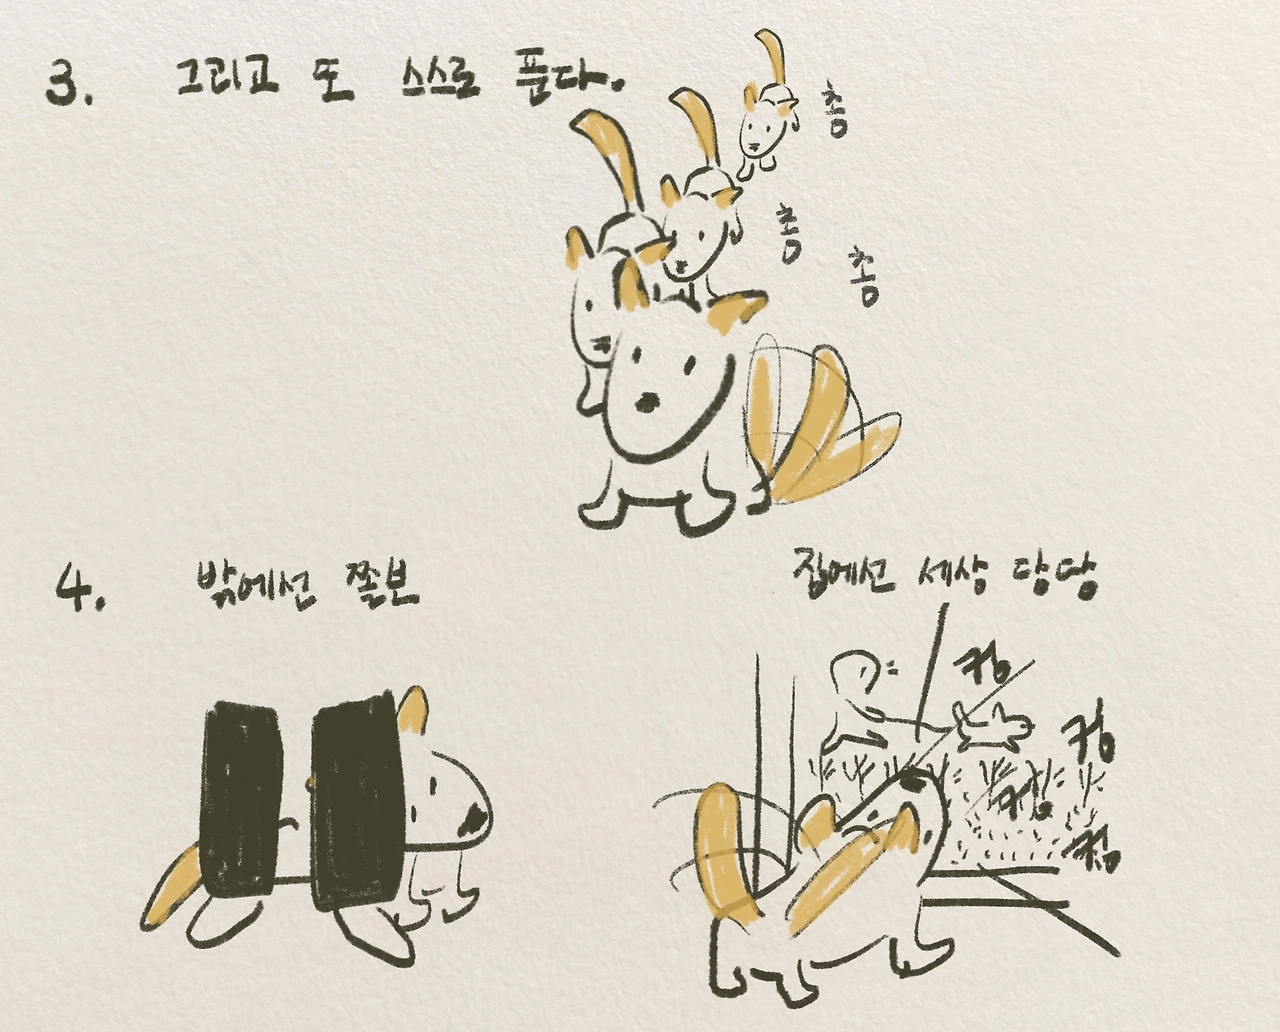 3. 그리고 또 스스로 푼다.
총
총
총
4. 밖에선 쫄보
집에선 세상 당당
컹
컹
컹
컹